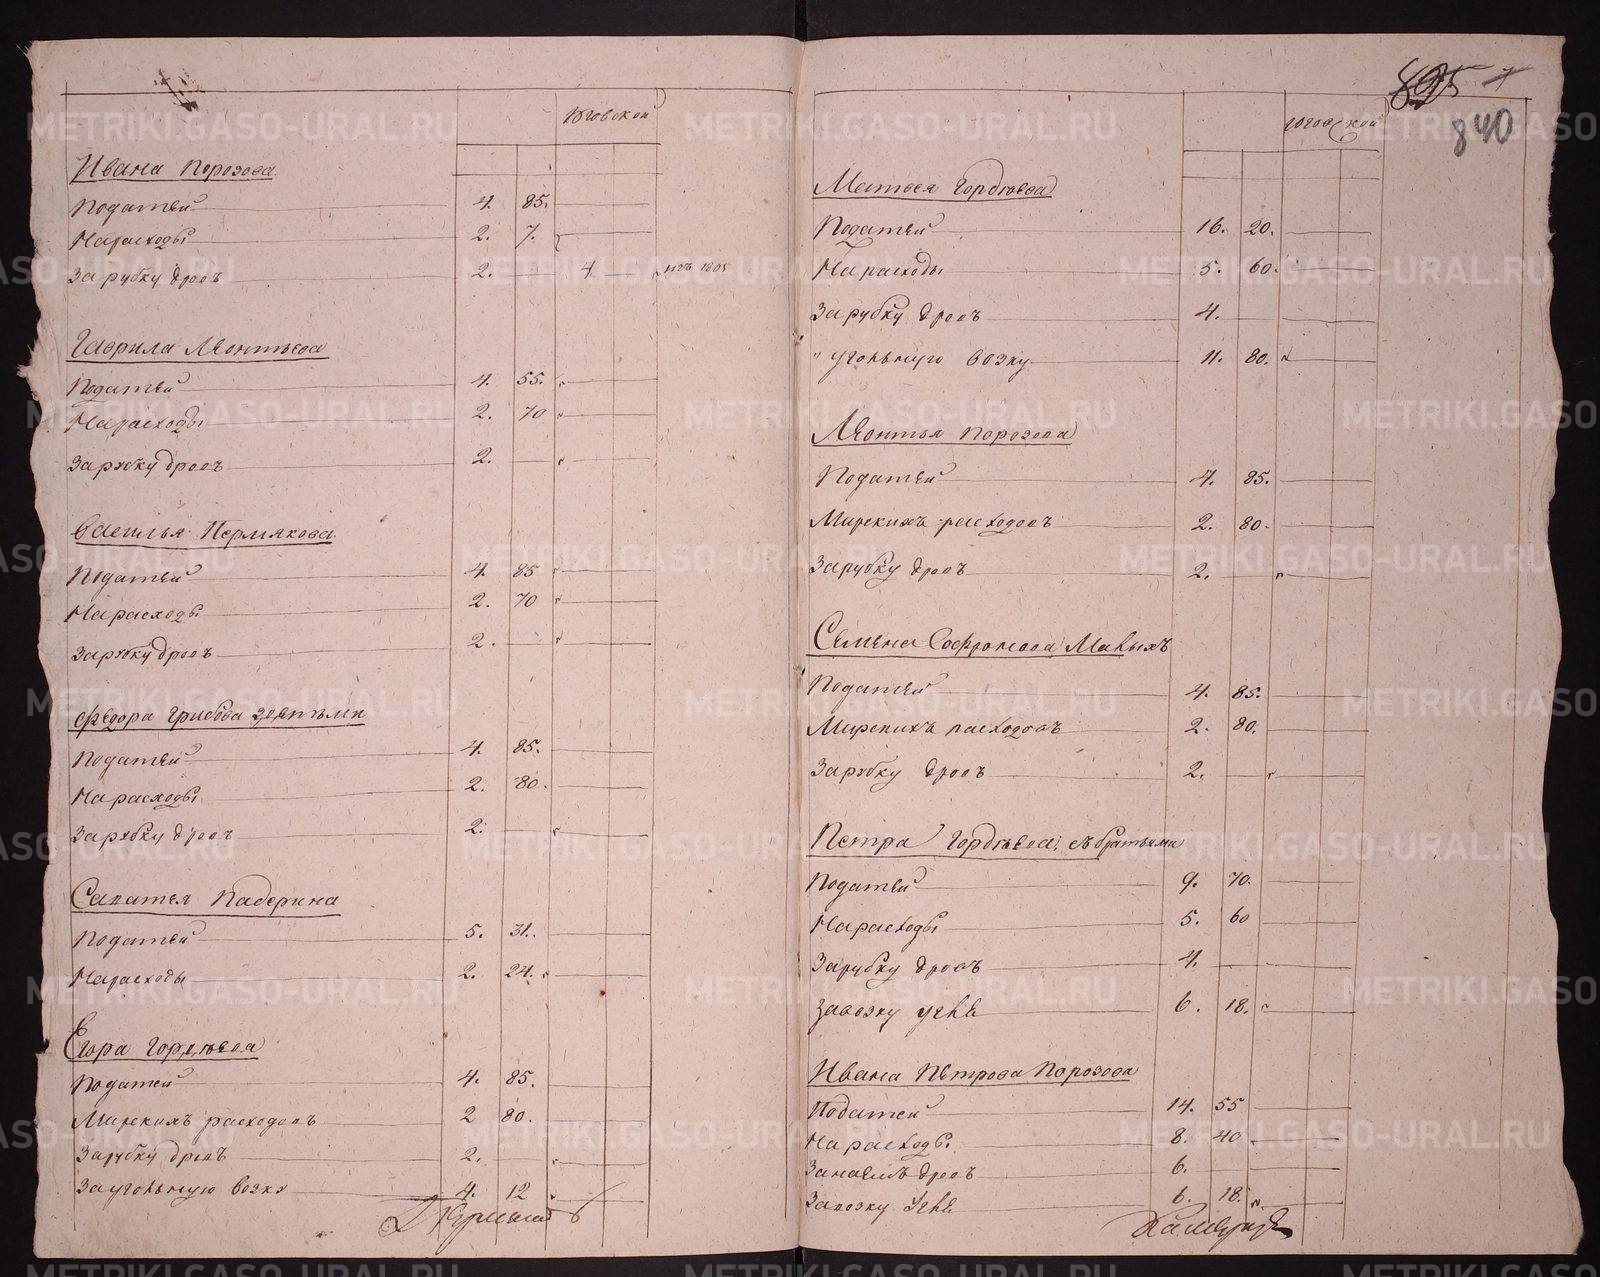 Юговской
Ивана Порозова
Податей 4. 85.
На расходы 2. 7.
За рубку дровъ 2. 4
Гаврила Леонтьева
Податей 4. 55.
На расходы 2. 70
За рубку дровъ 2.
Василья Пермякова
Податей 4. 85
На расходы 2. 70
За рубку дровъ 2.
Федора Грибова
Податей 4. 85.
На расходы 2. 80.
За рубку дровъ 2.
Саватея Падерина
Податей 5. 31.
На расходы 2. 24.
Егора Гордѣева
Податей 4. 85.
Мирскихъ расходовъ 2 80.
За рубку дровъ 2.
За угольную возку 4. 12
895
840
Юговской
Матвея Гордѣева
Податей 16. 20.
На расходы 5. 60.
За рубку дровъ 4.
" угольную возку 11. 80.
Леонтья Порозова
Податей 4. 85.
Мирскихъ расходовъ 2. 80.
За рубку дровъ 2.
Семена Софронова
Податей 4. 85.
Мирскихъ расходовъ 2. 80.
За рубку дровъ 2.
Петра Гордѣева съ братьями
Податей 9. 70.
На расходы 5. 60
За рубку дровъ 4.
За возку 6. 18.
Ивана Петрова Порозова
Податей 14. 55
На расходы 8. 40
дровъ 6.
За возку 6. 18.
METRIKI.GASO-URAL.RU